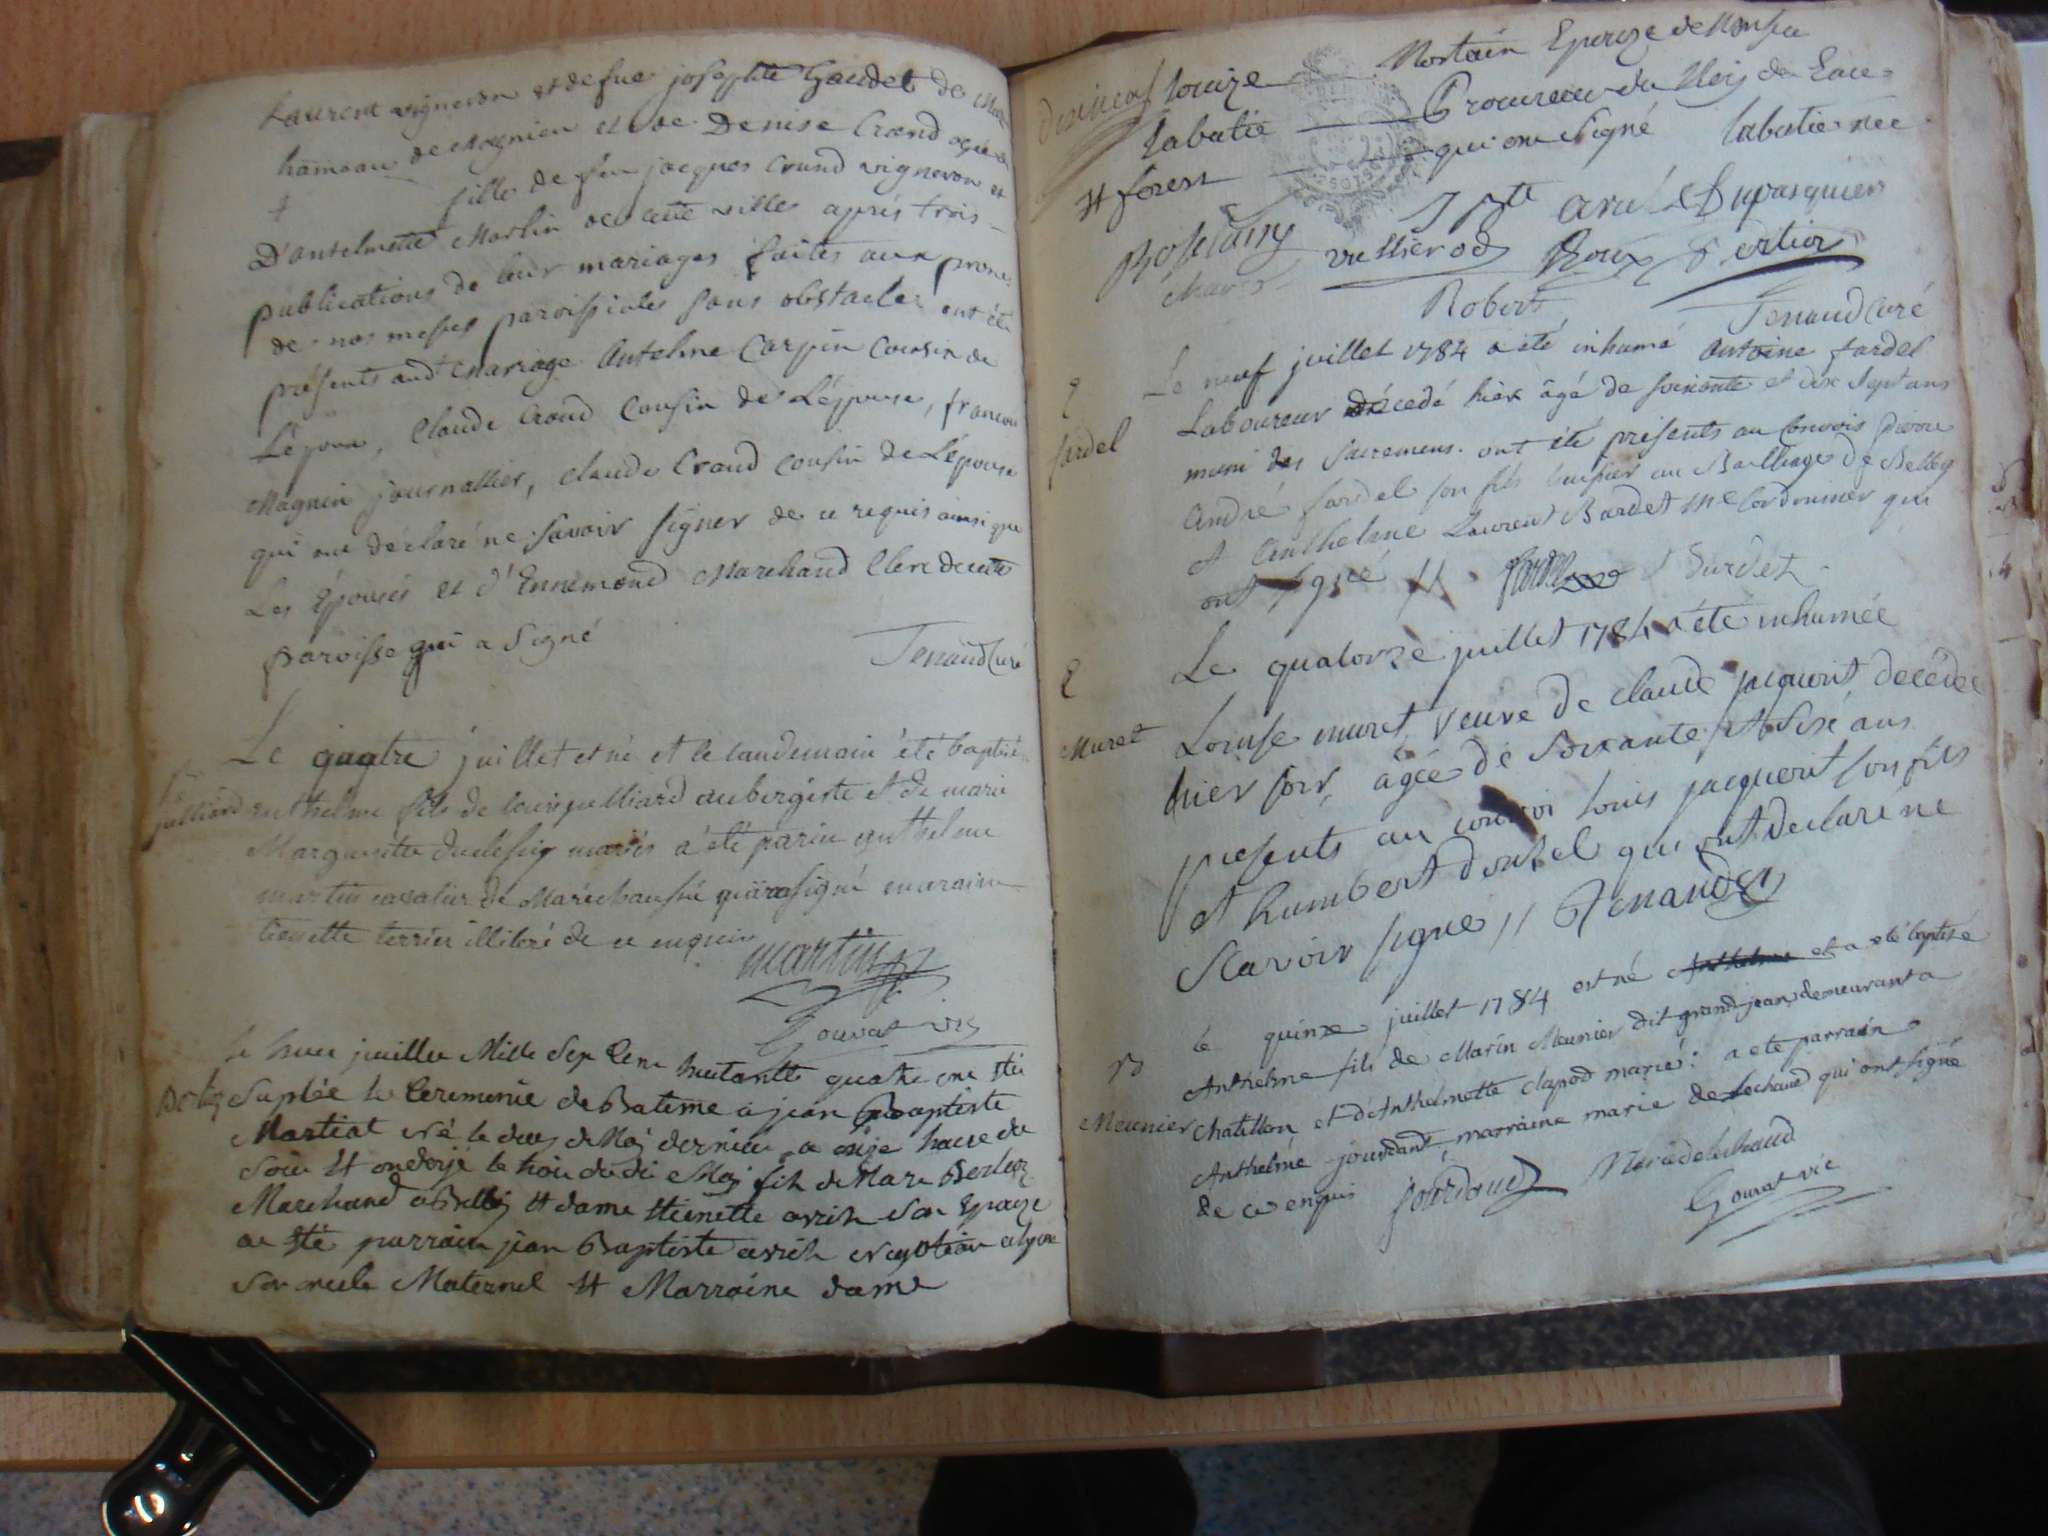 Laurent vigneron et de fue josephte Gaudet de
hameau de Magnieu et de Denise Craud agée de
fille de feu jacques Craud vigneron et
D'antelmette Martin de cette ville après trois
publications de leur mariages faites aux prones
de nos messes paroissiales sans obstacle, ont été
présents audt mariage Antelme Carpin Cousin de
L'époux, Claude Craud Cousin de L'épouse, francois
Magnin journallier, claude Craud cousin de L'épouse
qui ont déclaré ne savoir signer de ce requis ainsi que
Les Epousés et d'Ennemond Marchand Clerc de cette
paroisse qui a Signé
Tenand Curé
Le quatre juillet est né et le landemain été baptisé
julliard anthelme fils de louis julliard aubergiste et de marie
Marguerite mariés a été parin anthelme
martin cavalier de Maréchaussé qui a signé maraine
tienette terrier illiteré de ce enquis
martin
Gouvat vic
Le huit juillet Mille Sept Cent huitantte quatre ont été
Suplée le Ceremonie de Bateme a jean Baptiste
Martial né le deux de Maj dernier a onze heure du
Soir et ondoyé le trois dudi Maj fils de Marc
Marchand a Belley et dame tienette avril Son Epouze
a été parrain jean Baptiste avril a lyon
Son oncle Maternel et Marraine dame
louize Mortain Epouze de Monsieur
labatie Procureur du Roy de
et forest qui ont signé labatie née
Rosetain
Dupasquier
Roux
Robert
Tenand Curé
Le neuf juillet 1784 a été inhumé Antoine fardel
fardel
Laboureur décedé hier âgé de soixante et dix sept ans
muni des Sacremens. ont été présents au Convois pierre
André fardel son fils huissier au Bailliage de Belley
et Anthelme Laurent Bardet Me Cordonnier qui
ont signé // fardel Burdet
Le quatorze juillet 1784 a été inhumée
Muret
Louise muret veuve de claude jacquout décédée
hier soir, agée de soixante et sixe ans
presents au convoi louis jacquout son fils
et humbert doutel qui ont declaré ne
scavoir signe // Tenand
B
le quinze juillet 1784 est né Anthelme et a été baptisé
Anthelme fils de Marin Meunier dit grand jean demeurant a
Meunier chatillon et d'Anthelmette clapod mariés : a ete parrain
Anthelme jourdant marraine marie delechaud qui ont signé
de ce enquis jourdand Marie delechaud
Gouvat vic